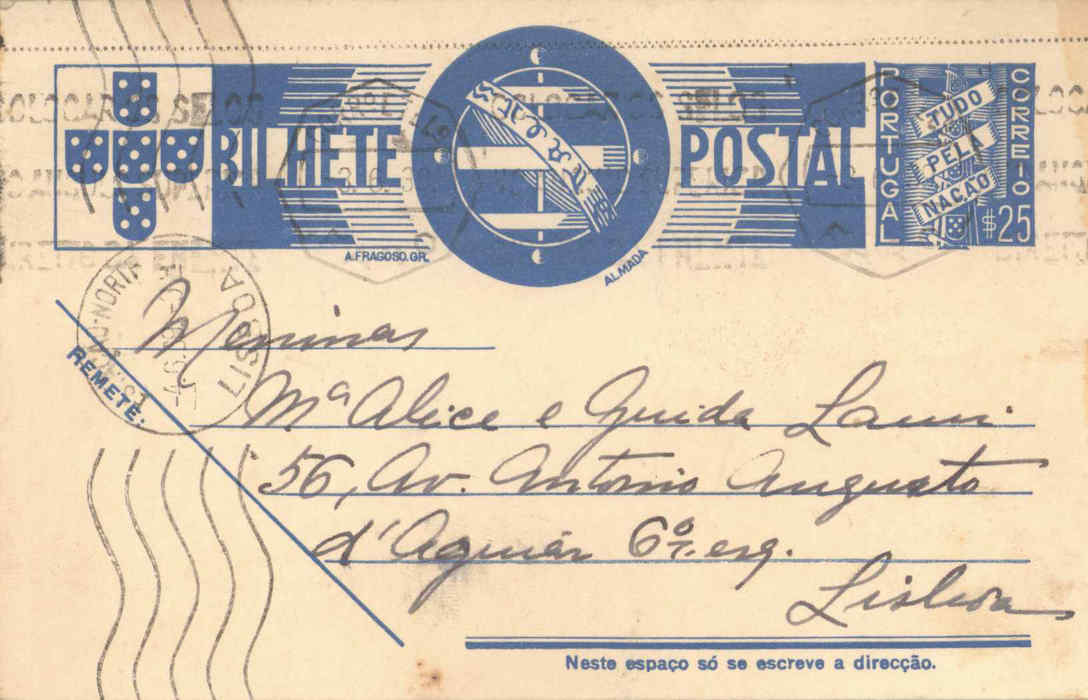 BILHETE POSTAL
PORTUGAL
CORREIO
TUDO
PELA
NAÇÃO
$25
A. FRAGOSO. GR.
ALMADA
LISBOA
REMETE:
Meninas
Mª Alice e Guida
56, Av. Antonio Augusto
d'Aguiar 6º esq.
Lisboa
Neste espaço só se escreve a direcção.